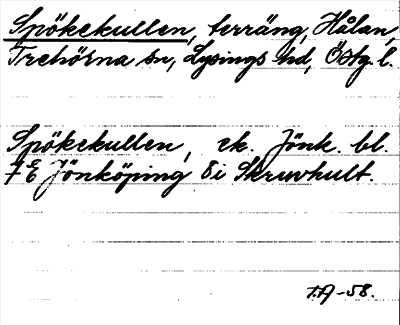 Spökekullen, terräng, Hålan,
Trehörna sn, Lysings hd, Östg. l.
Spökekullen, ek. Jönk. bl.
7E Jönköping 8i Skruvhult.
T.A-58.